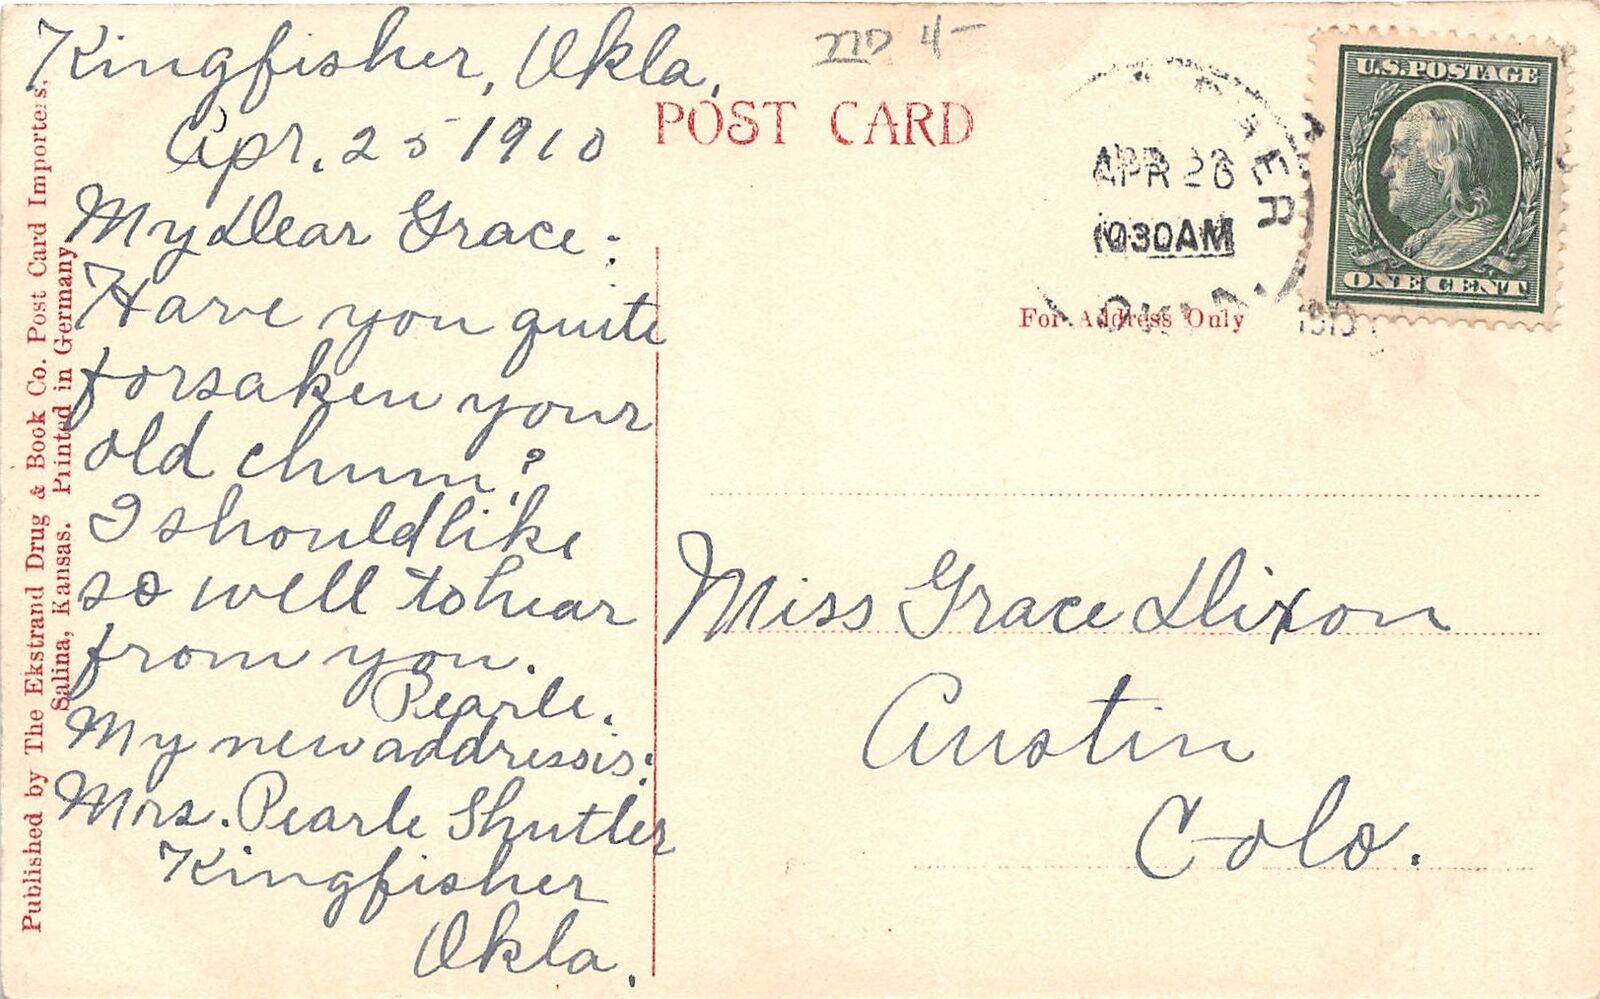 Kingfisher, Okla.
Apr. 25 1910
My Dear Grace:
Have you quite
forsaken your
old chum?
I should like
so well to hear
from you.
Pearle.
My new address is:
Mrs. Pearle Shutler
Kingfisher
Okla.
Published by The Ekstrand Drug & Book Co. Post Card Importers,
Salina, Kansas. Printed in Germany
4-
POST CARD
APR 26
1030AM
OKLA.
1910
U.S. POSTAGE
ONE CENT
For Address Only
Miss Grace Dixon
Austin
Colo.